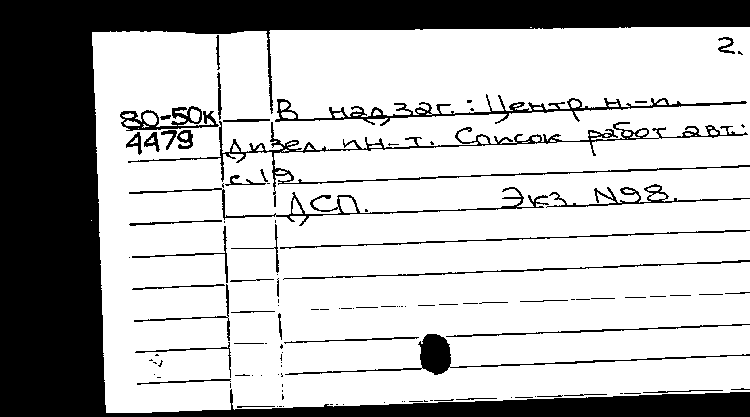 2.
80-50к В надзаг.: Центр. н.-и.
4479 дизел. ин-т. Список работ авт.:
с.19.
ДСП. Экз. N98.